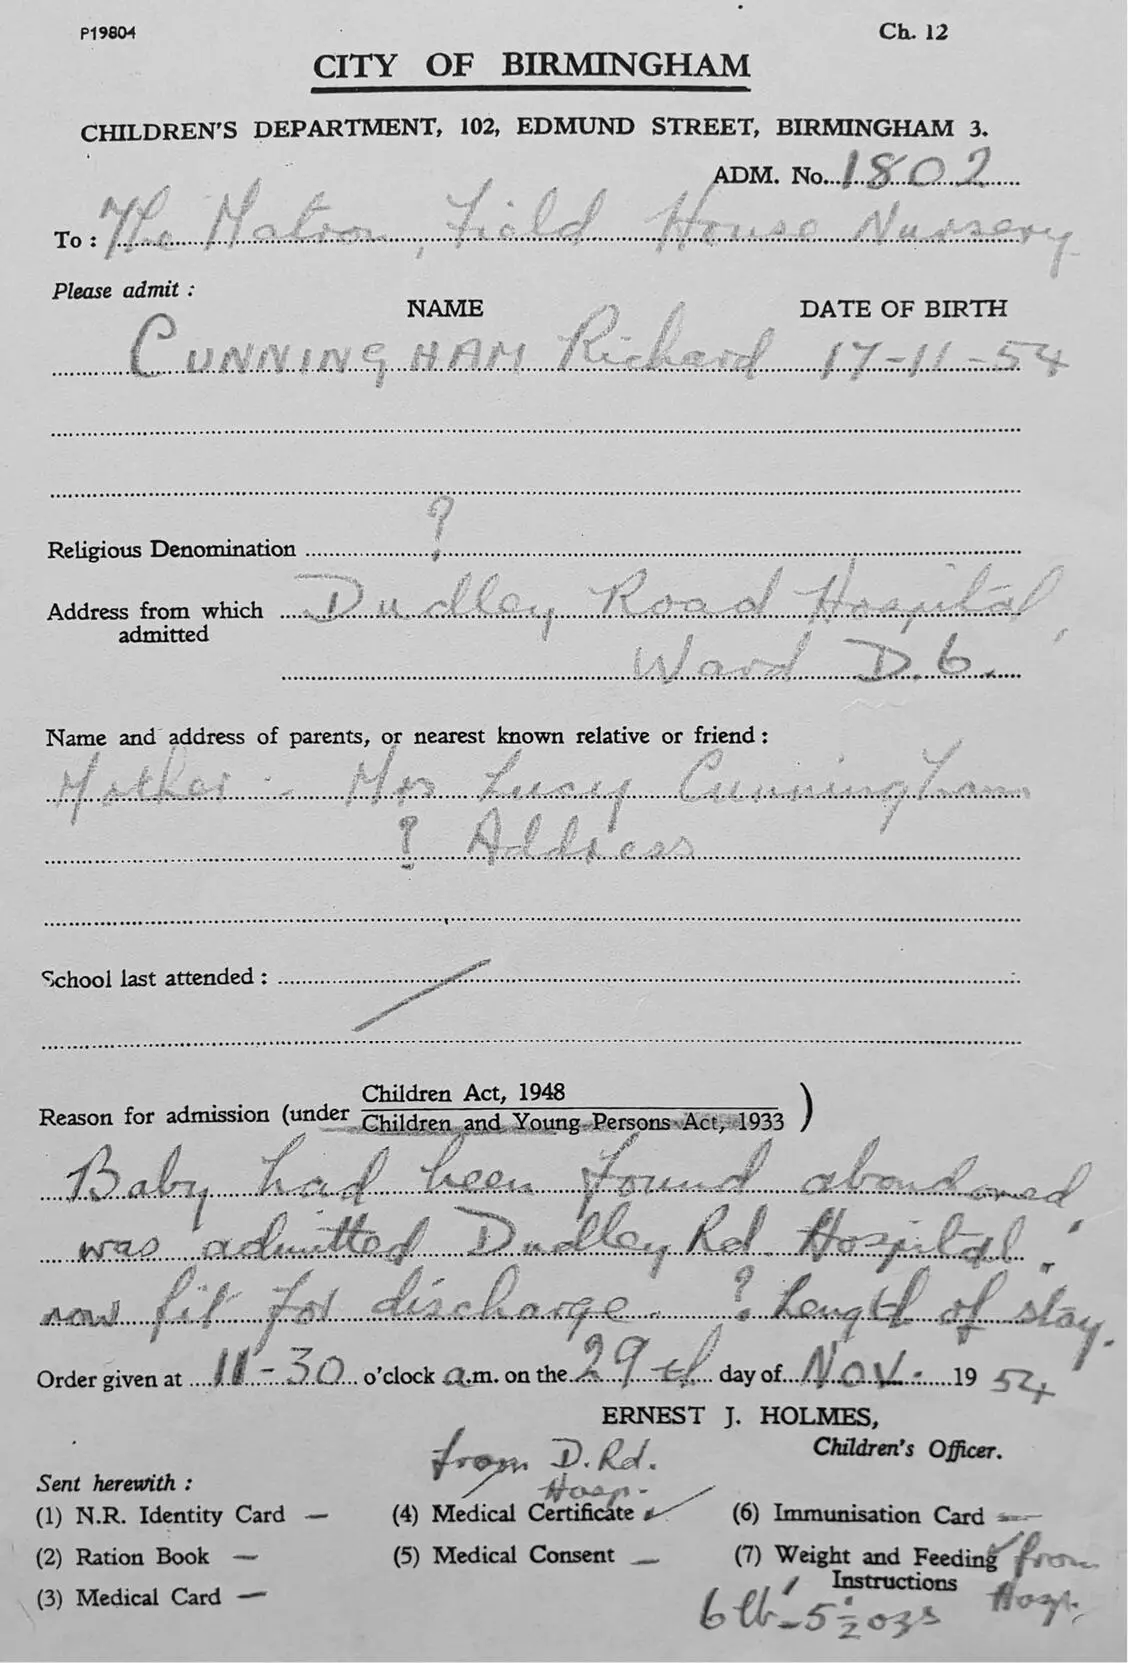 P19804
Ch. 12
CITY OF BIRMINGHAM
CHILDREN'S DEPARTMENT, 102, EDMUND STREET, BIRMINGHAM 3.
ADM. No. 1802
To : The Matron, Field House Nursery
Please admit :
NAME DATE OF BIRTH
CUNNINGHAM Richard 17-11-54
Religious Denomination ?
Address from which admitted Dudley Road Hospital,
Ward D.6.
Name and address of parents, or nearest known relative or friend :
Mother :- Mrs Lucy Cunningham
? Address
School last attended :
Reason for admission (under Children Act, 1948
Children and Young Persons Act, 1933 )
Baby had been found abandoned,
was admitted Dudley Rd. Hospital.
now fit for discharge. ? Length of stay.
Order given at 11-30 o'clock a.m. on the 29th day of Nov. 1954
ERNEST J. HOLMES,
Children's Officer.
from D.Rd.
Hosp.
Sent herewith :
(1) N.R. Identity Card — (4) Medical Certificate ✓ (6) Immunisation Card —
(2) Ration Book — (5) Medical Consent — (7) Weight and Feeding ✓ from
(3) Medical Card — Instructions Hosp.
6 lb - 5 ½ ozs